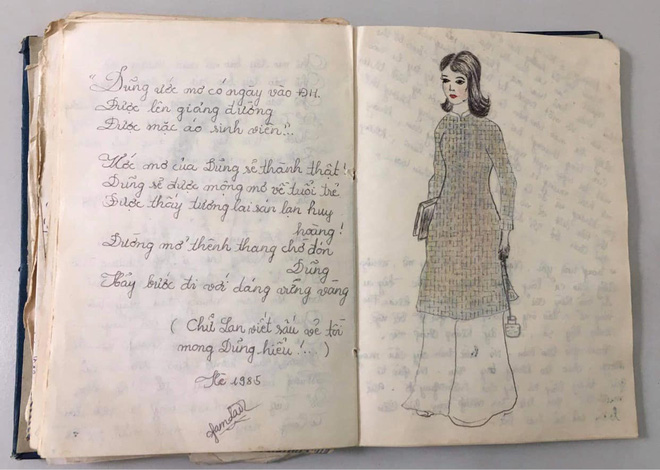 "Dũng ước mơ có ngày vào ĐH.
Được lên giảng đường
Được mặc áo sinh viên"..
Ước mơ của Dũng sẽ thành thật!
Dũng sẽ được mộng mơ về tuổi trẻ
Được thấy tương lai sán lạn huy
hoàng!
Đường mở thênh thang chờ đón
Dũng
Hãy bước đi với dáng vững vàng
(Chữ Lan viết xấu vẻ tồi
mong Dũng hiểu!...)
Hè 1985